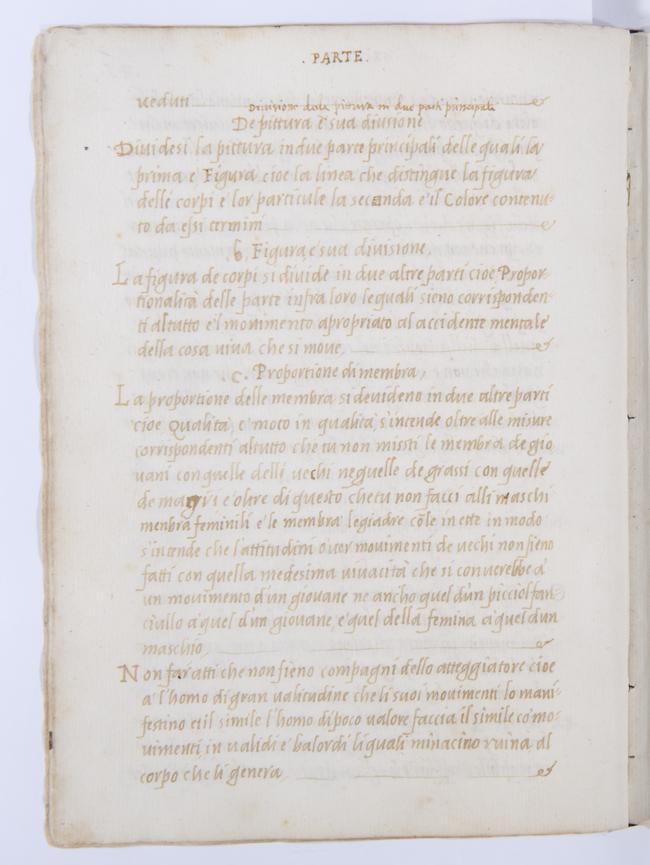 . PARTE .
ueduti
Divisione della pictura in due parti principali
De pittura e sua diuisione
Diuidesi la pittura in due parte principali delle quali la
prima e Figura cioe la linea che distingue la figura
delli corpi e lor particule la seconda e il Colore contenu-
to da essi termini
.b. Figura e sua divisione.
La figura de corpi si diuide in due altre parti cioe Propor-
tionalita delle parte infra loro le quali sieno corrisponden-
ti al tutto e'l mouimento apropriato al accidente mentale
della cosa uiua che si moue
.c. Proportione di membra,
La proportione delle membra si deuideno in due altre parti
cioe Qualita, e moto in qualita, s'intende oltre alle misure
corrispondenti al tutto che tu non misti le membra de gio
uani con quelle delli uechi ne quelle de grassi con quelle
de magri e oltre di questo che tu non facci alli maschi
menbra feminili e le membra legiadre cō le inette in modo
s'intende che l'attitudini ouer mouimenti de uechi non sieno
fatti con quella medesima uiuacita che si conuerebbe a
un mouimento d'un giouane ne ancho quel d'un picciol fan
ciullo a quel d'un giouane, e quel della femina a quel d'un
maschio
Non far atti che non sieno compagni dello atteggiatore cioe
a l'homo di gran ualitudine che li suoi mouimenti lo mani-
festino et il simile l'homo di poco ualore faccia il simile co mo-
uimenti in ualidi e balordi li quali minacino ruina al
corpo che li genera